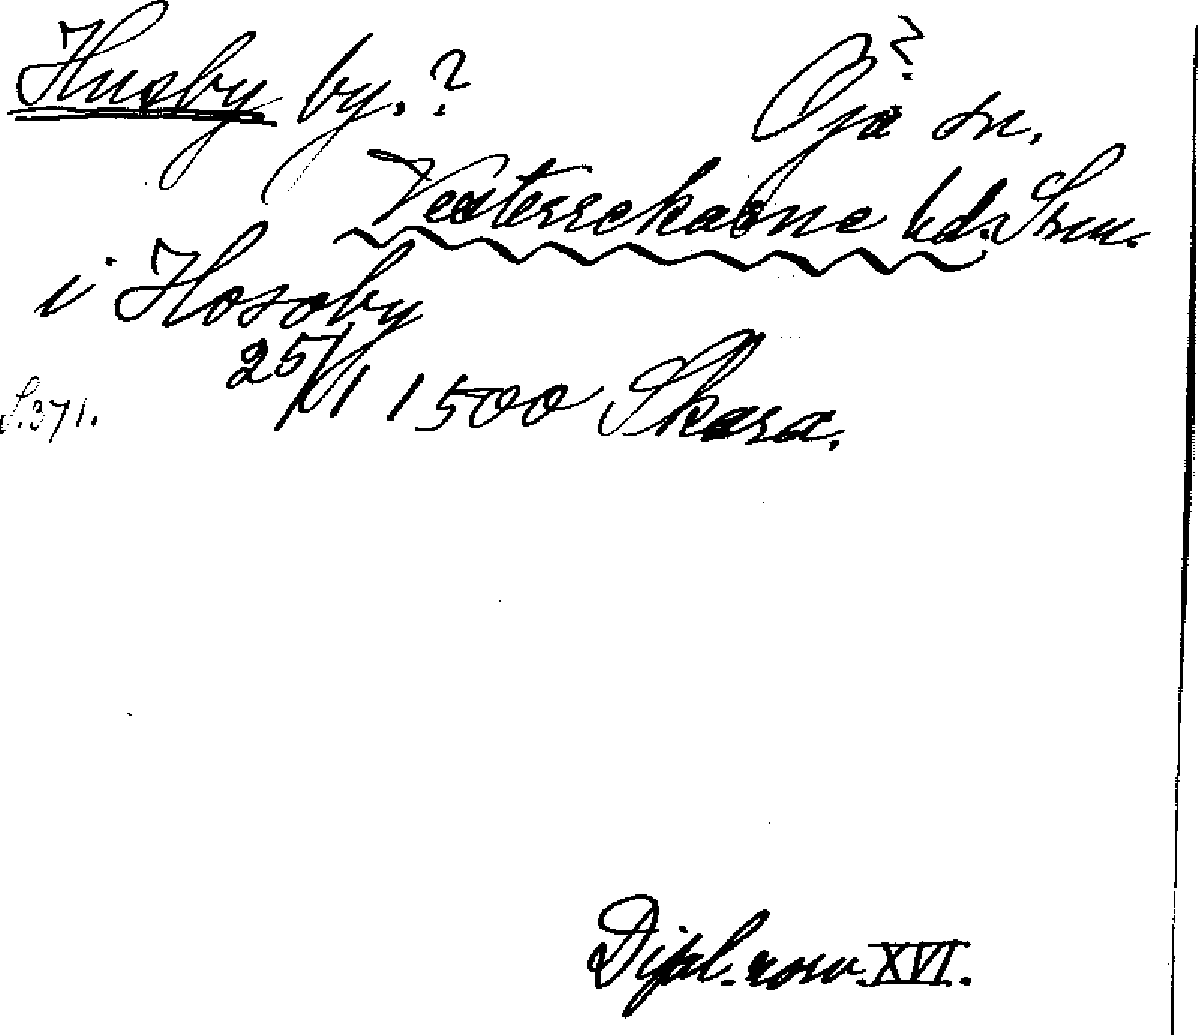 Husby by.? Öja sn.?
Vesterrekarne hd. Srm.
i Hosoby
25/11 1500 Skara.
S. 371.
Dipl. norv. XVI.